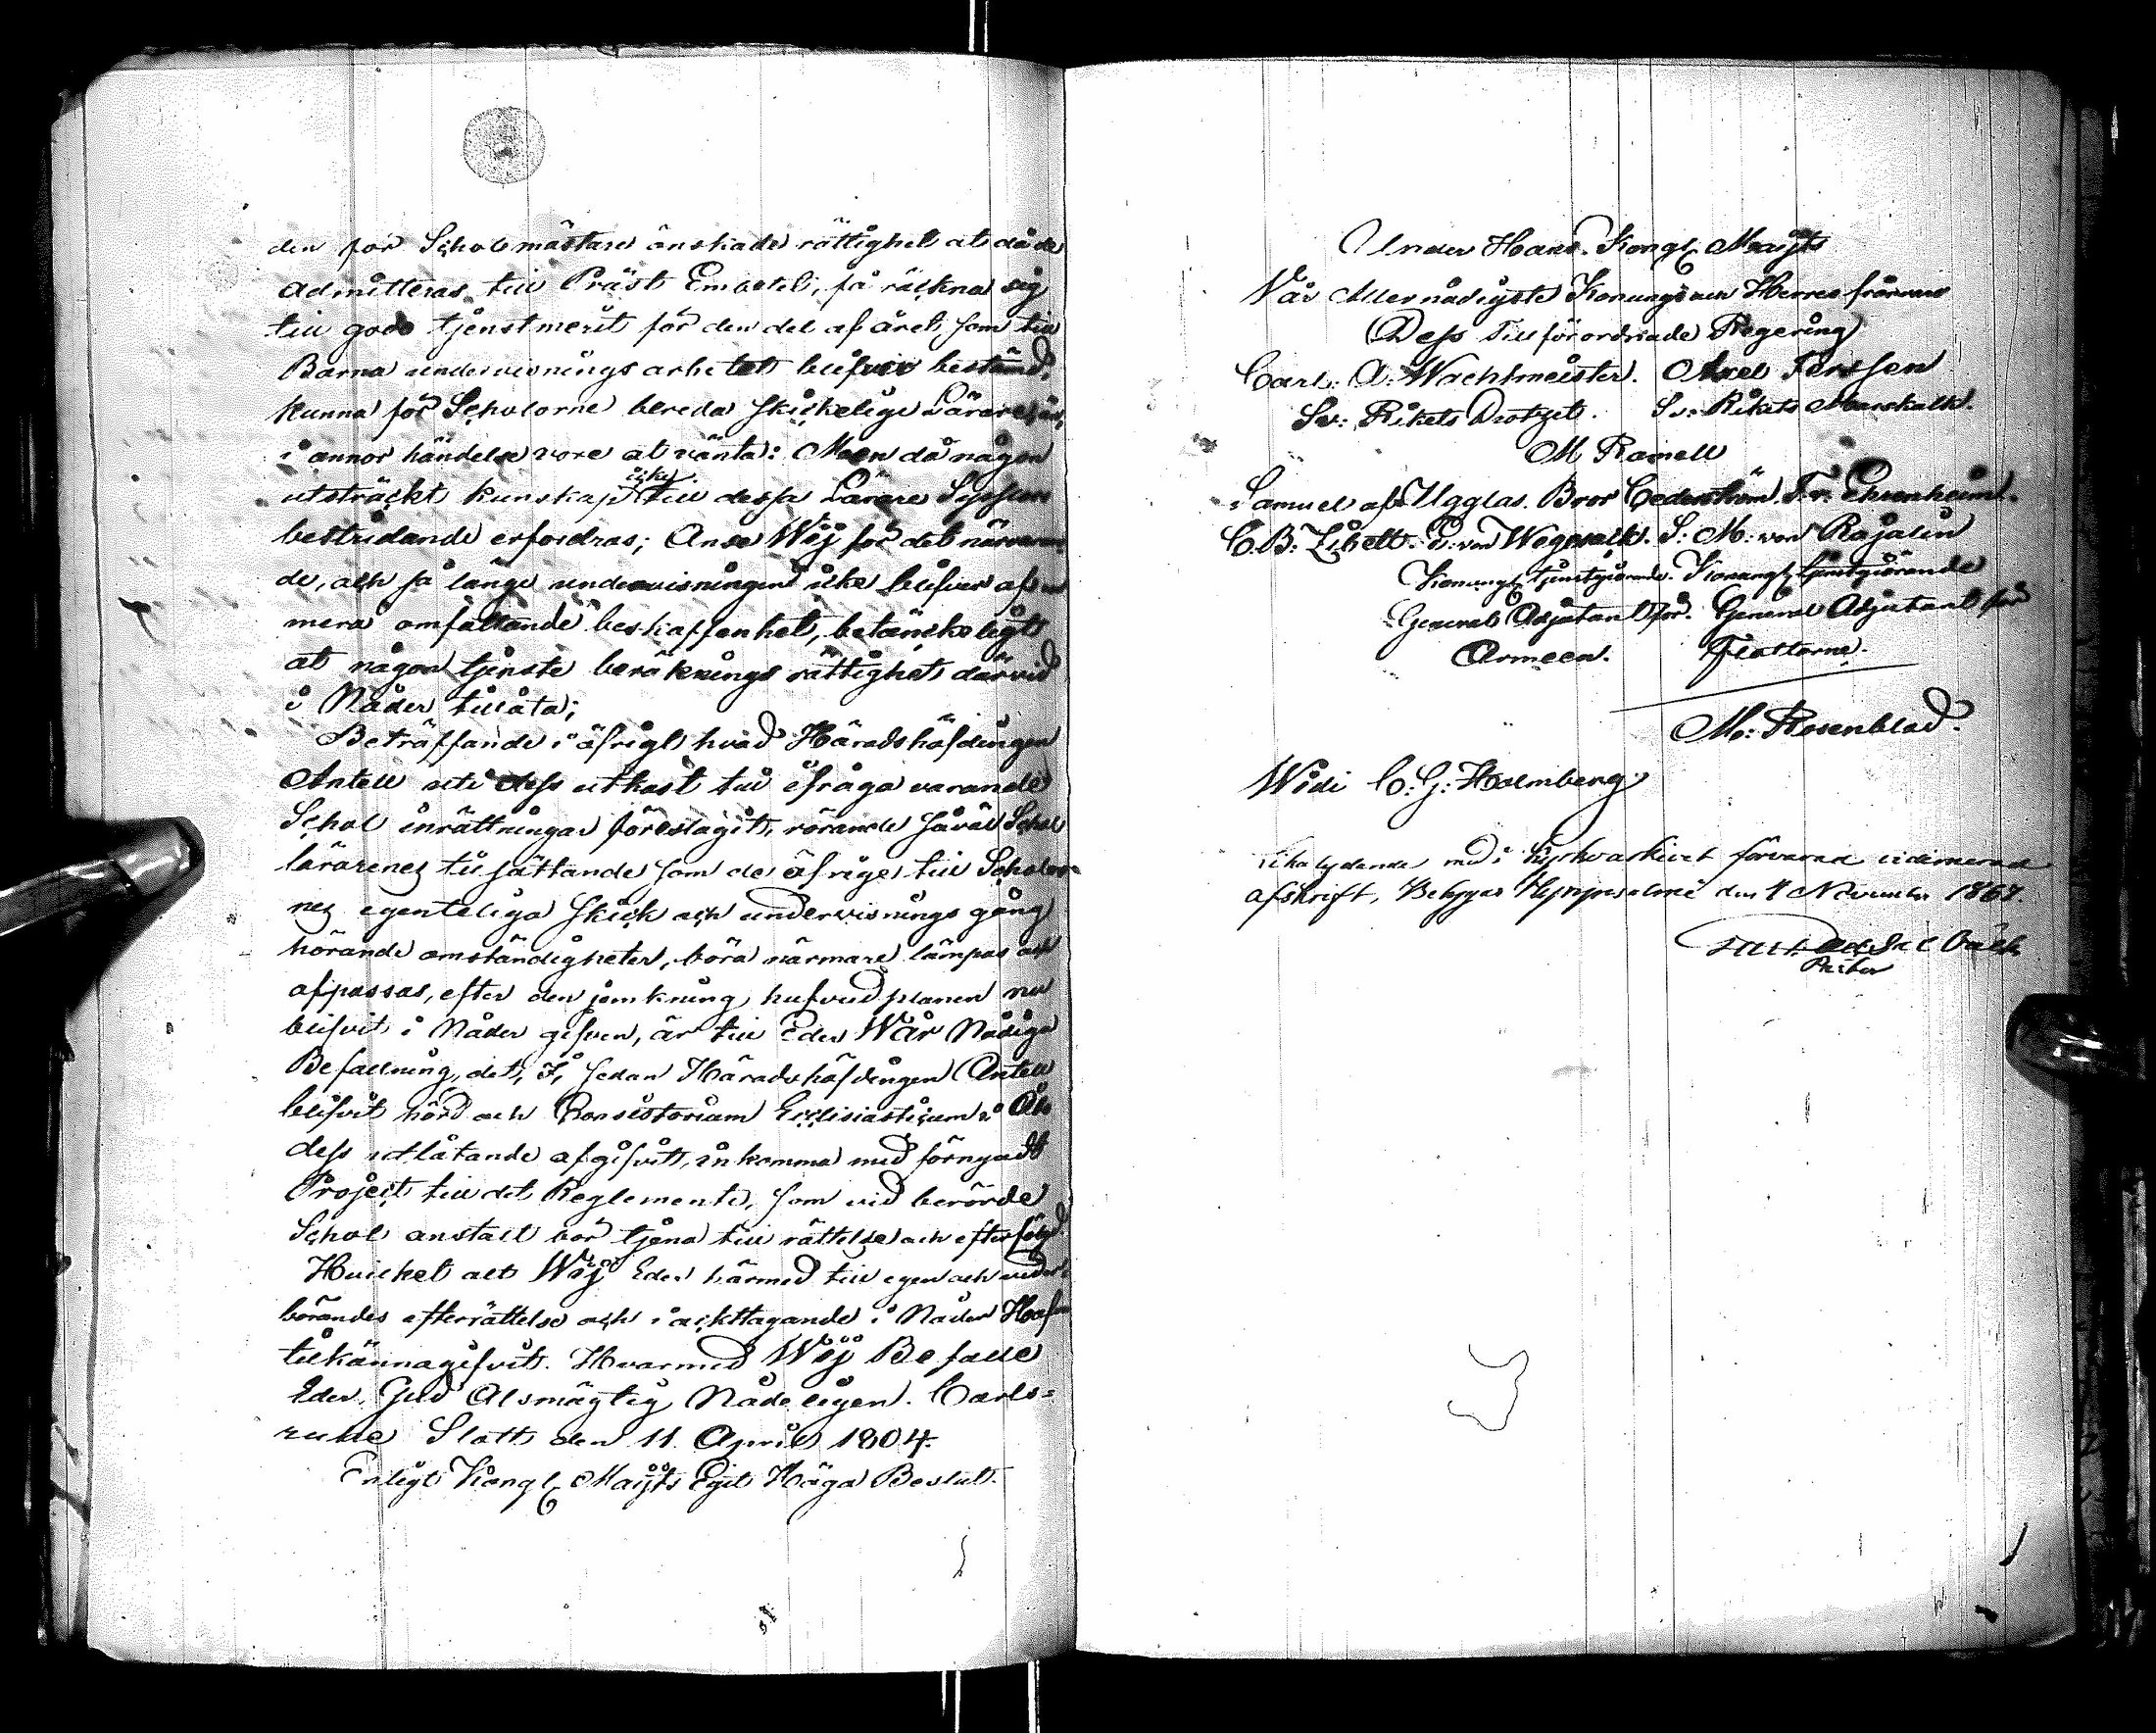 den för Scholmästare önskade rättighet at då de
admitteras till Präst Embetet, få räckna sig
till godo tjenstmerit för den del af året, som till
Barna undervisnings arbetet blifvit bestämd,
kunna för Scholorne bereda skickelige Lärare, än
i annor händelse vore at vänta: Men då någon
utsträckt kunskap icke till dessa Lärare Sysslors
bestridande erfordras; Anse Wij för det närvaran
de, och så länge undervisningen icke blifver af en
mera omfattande beskaffenhet, betänckeligt
at någon tjenste beräknings rättighet därvid
i Nåder tillåta;
Beträffande i öfrigt hvad Häradshöfdingen
Antell uti dess utkast till ifråga varande
Schol inrättningar föreslagit, rörande såväl Schol
lärarenes tillsättande som de öfrige till Scholor=
nes egenteliga skick och undervisnings gång
hörande omständigheter, böra närmare lämpas och
afpassas, efter den jemkning hufvudplanen nu
blifvit i Nåder gifven, är till Eder Wår Nådiga
Befallning, det, I, sedan Häradshöfdingen Antell
blifvit hörd och Consistorium Ecclesiasticum i Åbo
dess utlåtande afgifvit, inkomma med förnyadt
Project till det Reglemente, som vid berörde
Schol anstalt bör tjena till rättelse och efterföljd.
Hvilket alt Wij Eder härmed till egen och veder=
börandes efterrättelse och i ackttagande i Nåder Hafve
tillkännagifvit. Hvarmed Wij Befalle
Eder Gud Alsmägtig Nådeligen. Carls=
ruhe Slott den 11 April 1804.
Enligt Kongl Maijts Eget Höga Beslut.
Under Hans Kongl Maijts
Vår Allernådigste Konungs och Herres frånvaro
Dess Tillförordnade Regering
Carl: A: Wachtmeister. Axel Ferssen
Sv: Rikets Drotzet. Sv: Rikets Marskalk.
M Ramell
Samuel af Ugglas. Bror Cederström. F. v. Ehrenheim.
C. B: Zibett. D: von Wegesack. S: M: von Rajalin
Konungl tjenstgiörande. Konungl tjenstgiörande
General Adjutant för General Adjutant för
Armeen. Flottorne.
M: Rosenblad.
Widi C: G: Holmberg
Lika lydande med i Kyrkoarkivet förvarad vidimerad
afskrift, Betygar Nynpsalmi den 4 November 1867.